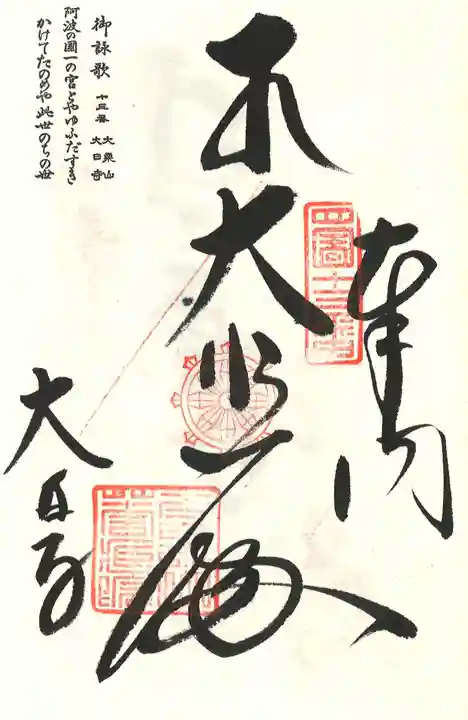 奉納
四国十三番
大悲殿
大日寺
御詠歌 十三番 大栗山
大日寺
阿波の國一の宮とやゆふだすき
かけてたのめや此世のちの世